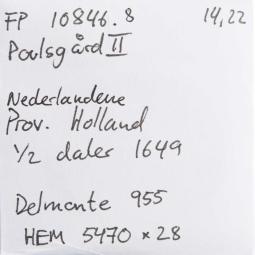 FP 10846.8 14,22
Poulsgård II
Nederlandene
Prov. Holland
1/2 daler 1649
Delmonte 955
HEM 5470 x 28